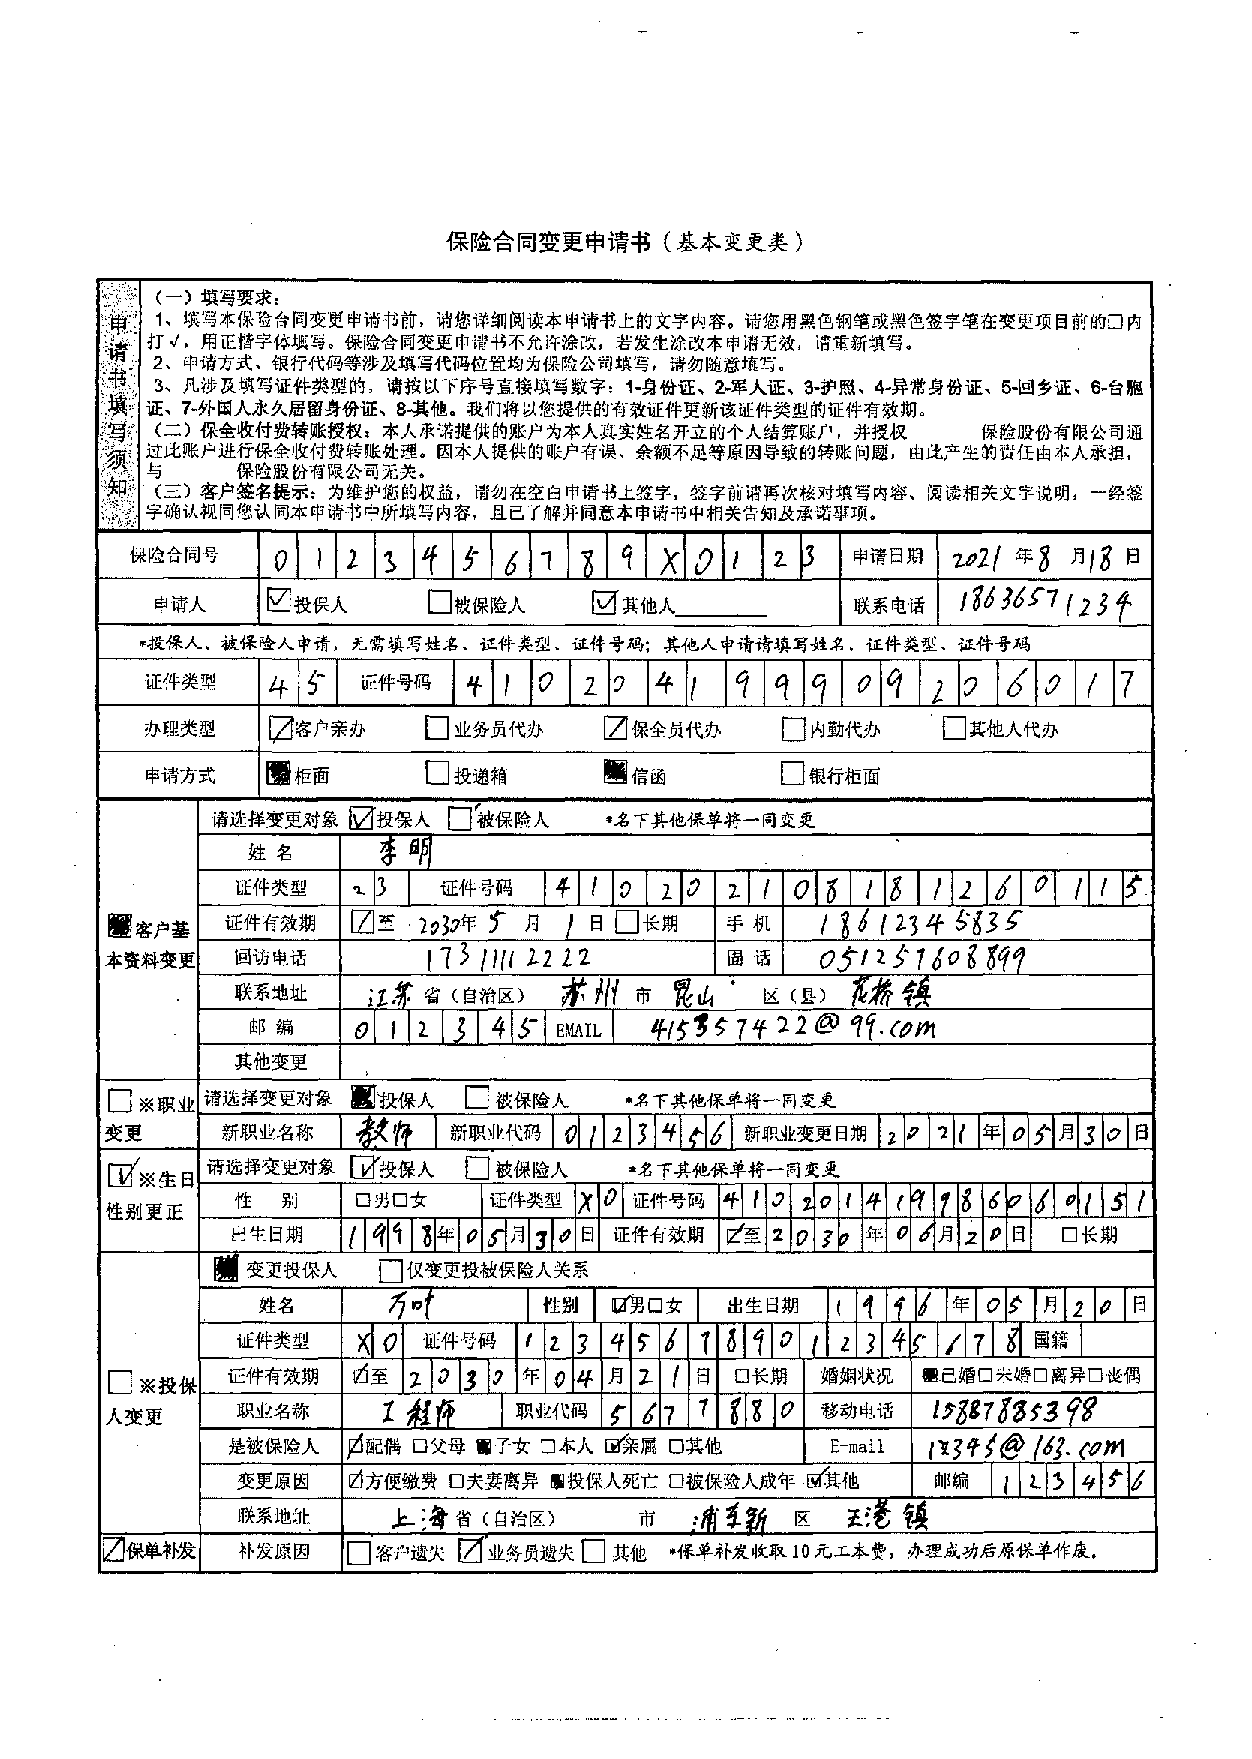 保险合同变更申请书（基本变更类）
申请书填写须知
（一）填写要求：
1、填写本保险合同变更申请书前，请您详细阅读本申请书上的文字内容。请您用黑色钢笔或黑色签字笔在变更项目前的□内
打√，用正楷字体填写。保险合同变更申请书不允许涂改，若发生涂改本申请无效，请重新填写。
2、申请方式、银行代码等涉及填写代码位置均为保险公司填写，请勿随意填写。
3、凡涉及填写证件类型的，请按以下序号直接填写数字：1-身份证、2-军人证、3-护照、4-异常身份证、5-回乡证、6-台胞
证、7-外国人永久居留身份证、8-其他。我们将以您提供的有效证件更新该证件类型的证件有效期。
（二）保全收付费转账授权：本人承诺提供的账户为本人真实姓名开立的个人结算账户，并授权 保险股份有限公司通
过此账户进行保全收付费转账处理。因本人提供的账户有误、余额不足等原因导致的转账问题，由此产生的责任由本人承担，
与 保险股份有限公司无关。
（三）客户签名提示：为维护您的权益，请勿在空白申请书上签字，签字前请再次核对填写内容、阅读相关文字说明，一经签
字确认视同您认同本申请书中所填写内容，且已了解并同意本申请书中相关告知及承诺事项。
保险合同号 0123456789X0123 申请日期 2021年8月18日
申请人 ☑投保人 □被保险人 ☑其他人 联系电话 18636571234
*投保人、被保险人申请，无需填写姓名、证件类型、证件号码；其他人申请请填写姓名、证件类型、证件号码
证件类型 45 证件号码 410204199909206017
办理类型 ☑客户亲办 □业务员代办 ☑保全员代办 □内勤代办 □其他人代办
申请方式 ■柜面 □投递箱 ■信函 □银行柜面
■客户基本资料变更
请选择变更对象 ☑投保人 □被保险人 *名下其他保单将一同变更
姓名 李明
证件类型 23 证件号码 410202108181260115
证件有效期 ☑至 2030年5月1日 □长期 手机 18612345835
回访电话 17311112222 固话 051257608899
联系地址 江苏省（自治区） 苏州市 昆山区（县） 花桥镇
邮编 012345 EMAIL 415357422@99.com
其他变更
□※职业变更
请选择变更对象 ■投保人 □被保险人 *名下其他保单将一同变更
新职业名称 教师 新职业代码 0123456 新职业变更日期 2021年05月30日
☑※生日性别更正
请选择变更对象 ☑投保人 □被保险人 *名下其他保单将一同变更
性别 □男□女 证件类型 X0 证件号码 410201419986060151
出生日期 1998年05月30日 证件有效期 ☑至2030年06月20日 □长期
□※投保人变更
■变更投保人 □仅变更投被保险人关系
姓名 万叶 性别 ☑男□女 出生日期 1996年05月20日
证件类型 X0 证件号码 123456789012345678 国籍
证件有效期 ☑至2030年04月21日 □长期 婚姻状况 ■已婚□未婚□离异□丧偶
职业名称 工程师 职业代码 5677880 移动电话 15887885398
是被保险人 ☑配偶 □父母 ■子女 □本人 ☑亲属 □其他 E-mail 12345@163.com
变更原因 ☑方便缴费 □夫妻离异 ■投保人死亡 □被保险人成年 ☑其他 邮编 123456
联系地址 上海省（自治区） 市 浦东新区 王港镇
☑保单补发 补发原因 □客户遗失 ☑业务员遗失 □其他 *保单补发收取10元工本费，办理成功后原保单作废。